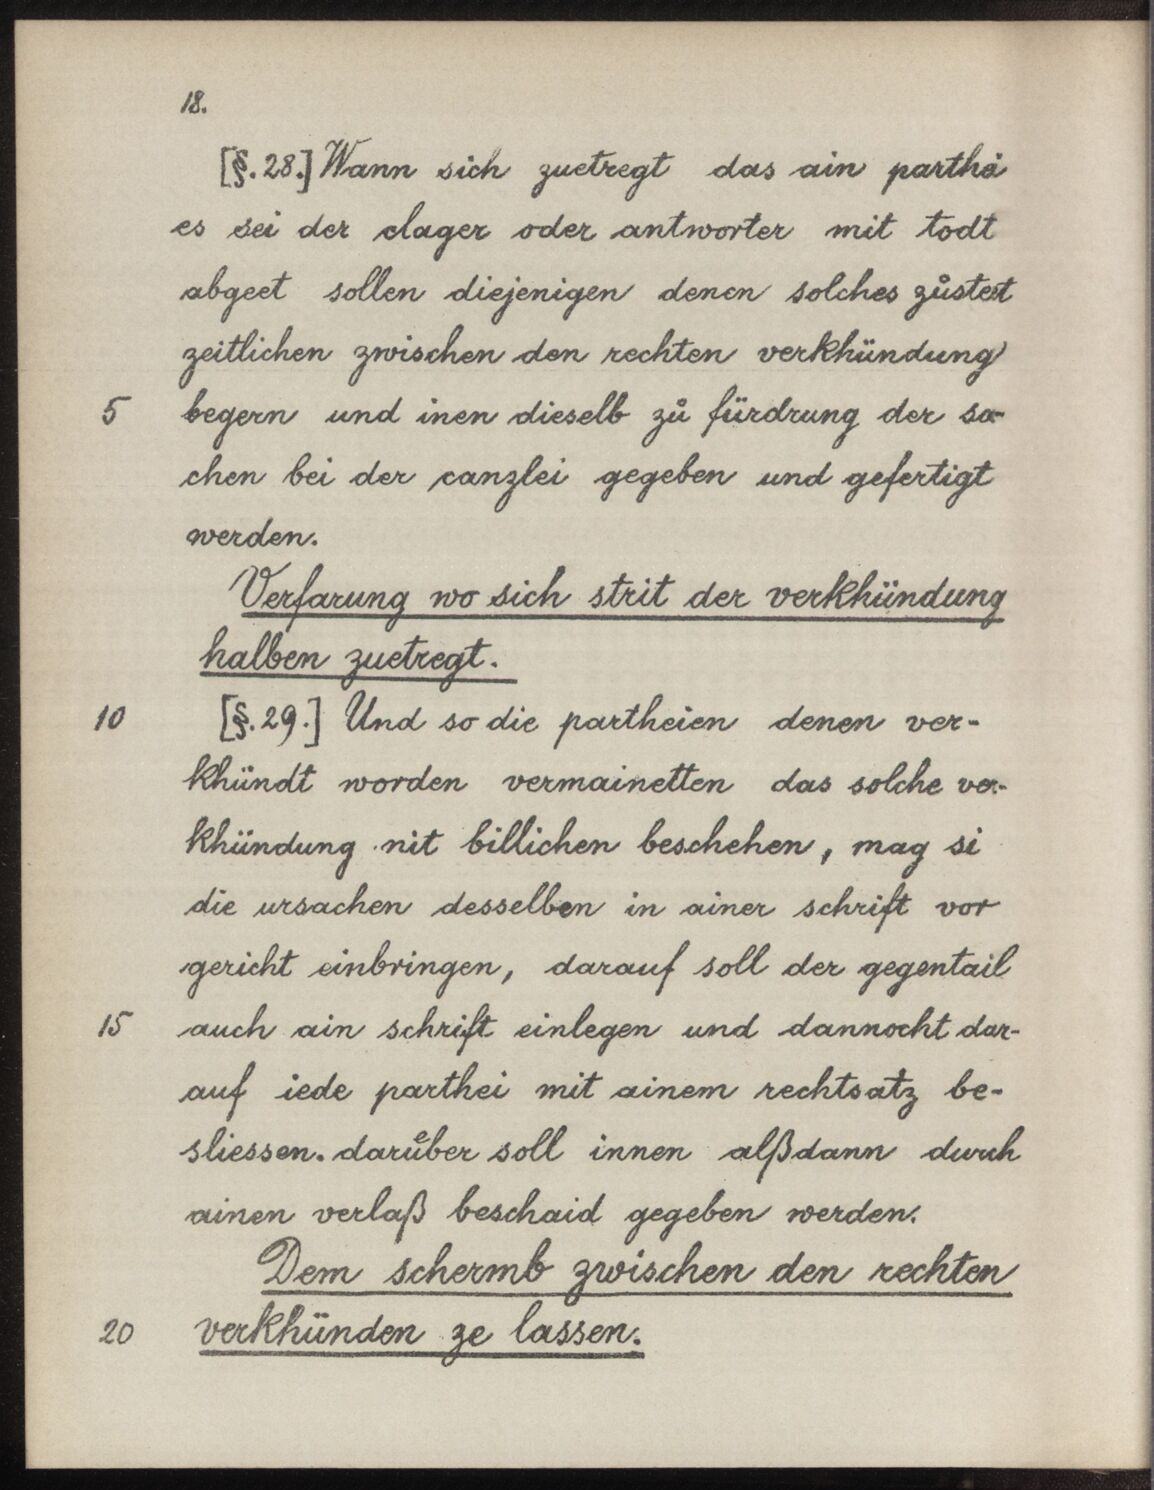 18.
[§.28.] Wann sich zuetregt das ain parthei
es sei der clager oder antworter mit todt
abgeet sollen diejenigen denen solches zůsteet
zeitlichen zwischen den rechten verkhündung
5 begern und inen dieselb zů fürdrung der sa-
chen bei der canzlei gegeben und gefertigt
werden.
Verfarung wo sich strit der verkhündung
halben zuetregt.
10 [§.29.] Und so die partheien denen ver-
khündt worden vermainetten das solche ver-
khündung nit billichen beschehen, mag si
die ursachen desselben in ainer schrift vor
gericht einbringen, darauf soll der gegentail
15 auch ain schrift einlegen und dannocht dar-
auf iede parthei mit ainem rechtsatz be-
sliessen. daruͤber soll innen alßdann durch
ainen verlaß beschaid gegeben werden.
Dem schermb zwischen den rechten
20 verkhünden ze lassen.